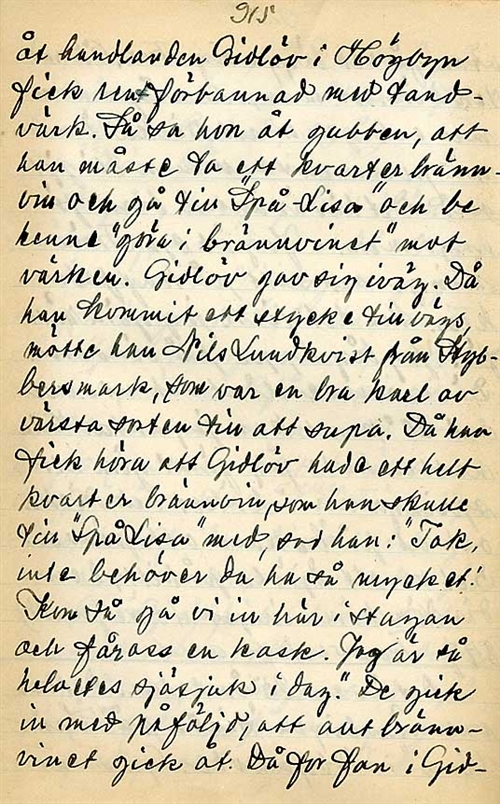 915
åt handlanden Gidlöv i Högbyn
fick rent förbannad med tand-
värk. Så sa hon åt gubben, att
han måste ta ett kvarter bränn-
vin och gå till "Spå-Lisa" och be
henne "göra i brännvinet" mot
värken. Gidlöv gav sig iväg. Då
han kommit ett stycke till vägs,
mötte han Nils Lundkvist från Styb-
bersmark, som var en bra karl av
värsta sorten till att supa. Då han
fick höra att Gidlöv hade ett helt
kvarter brännvin, som han skulle
till "Spå Lisa" med, sad han: "Tok,
inte behöver du ha så mycket!
Kom så gå vi in här i stugan
och få oss en kask. Jag är så
helvetes sjösjuk i dag." De gick
in med påföljd, att allt bränn-
vinet gick åt. Då for fan i Gid-